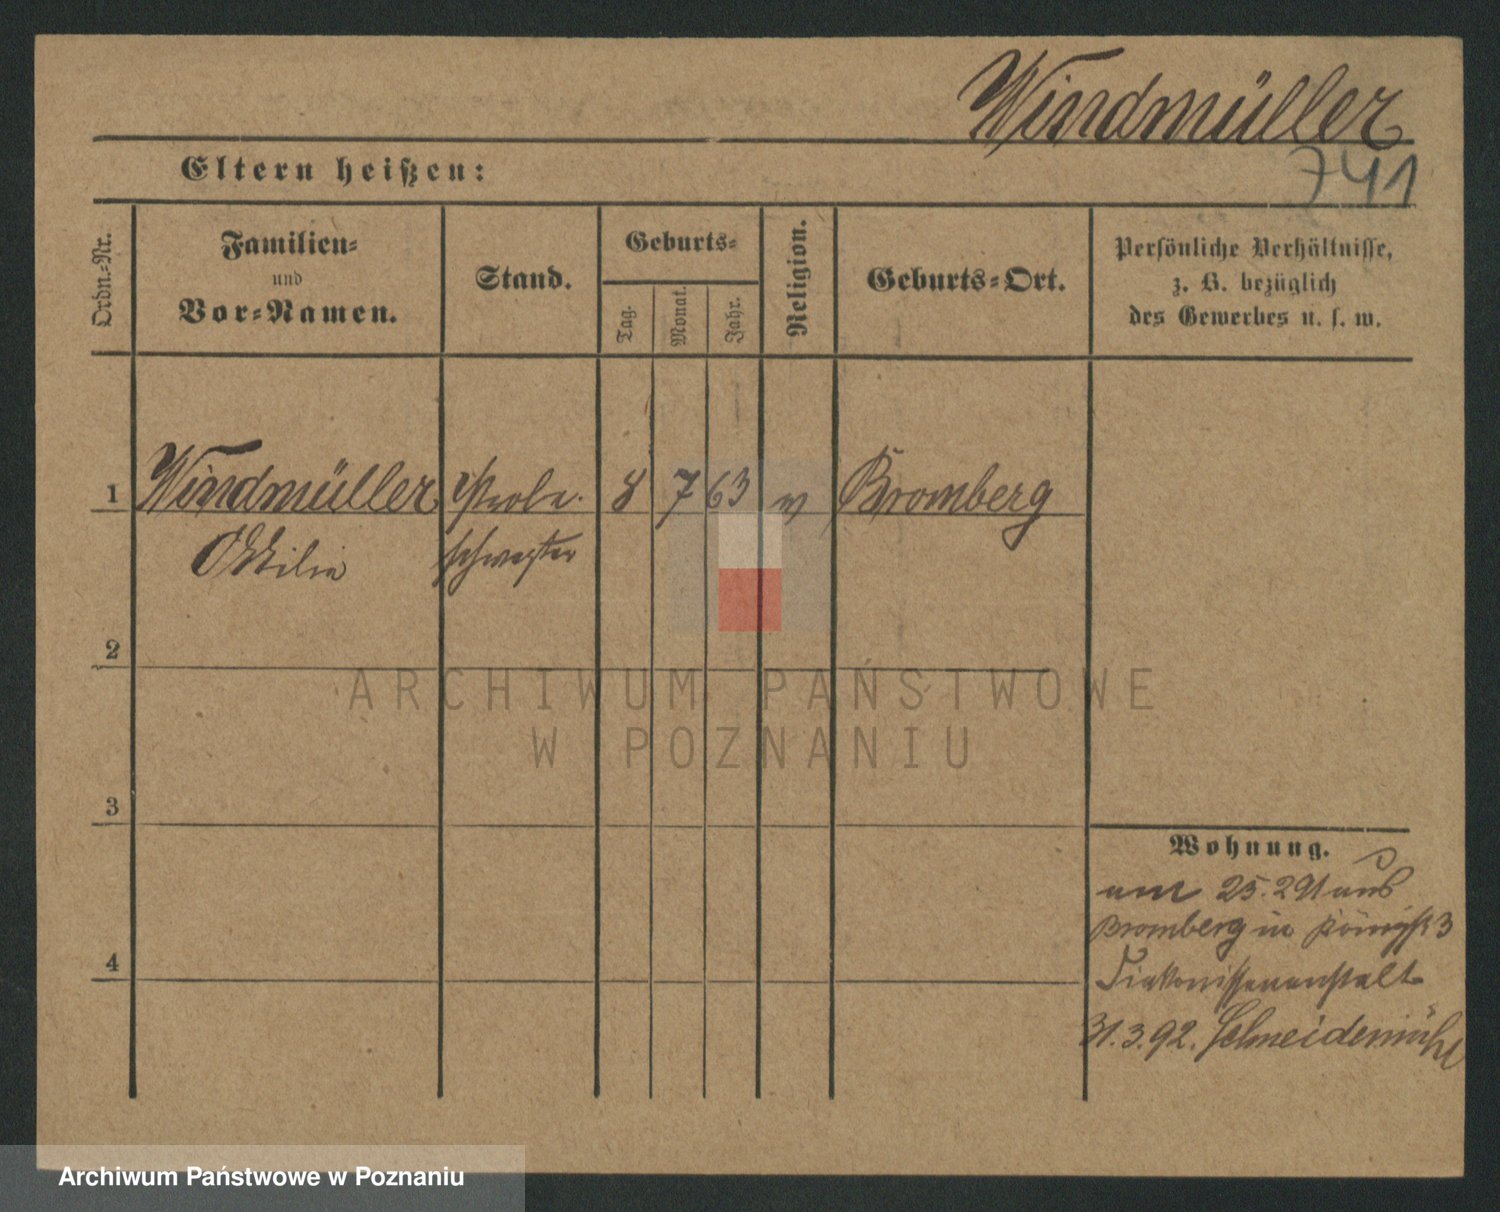 Windmüller
741
Eltern heißen:
Ordn.-Nr.
Familien-
und
Vor-Namen.
Stand.
Geburts-
Tag.
Monat.
Jahr.
Religion.
Geburts-Ort.
Persönliche Verhältnisse,
z. B. bezüglich
des Gewerbes u. s. w.
1 Windmüller Probe- 8 7 63 Bromberg
Ottilie schwester
2
3
4
Wohnung.
am 25.2 91 aus
Bromberg in Königst 3
Diakonissenanstalt
31.3.92. Schneidemühl
ARCHIWUM PAŃSTWOWE
W POZNANIU
Archiwum Państwowe w Poznaniu